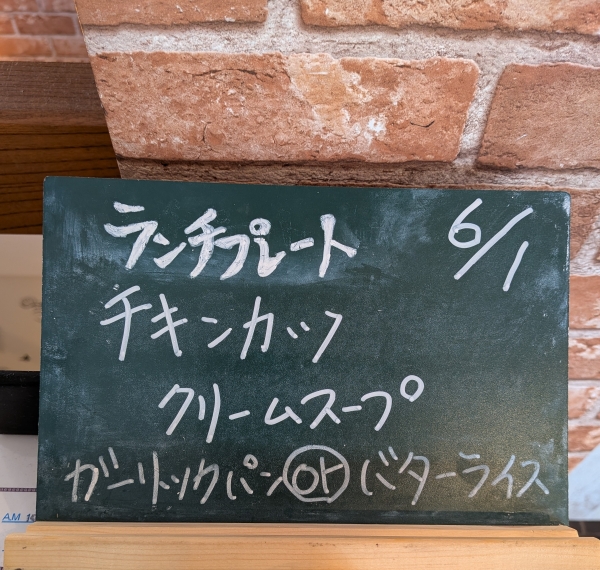 ランチプレート 6/1
チキンカツ
クリームスープ
ガーリックパン or バターライス
A.M